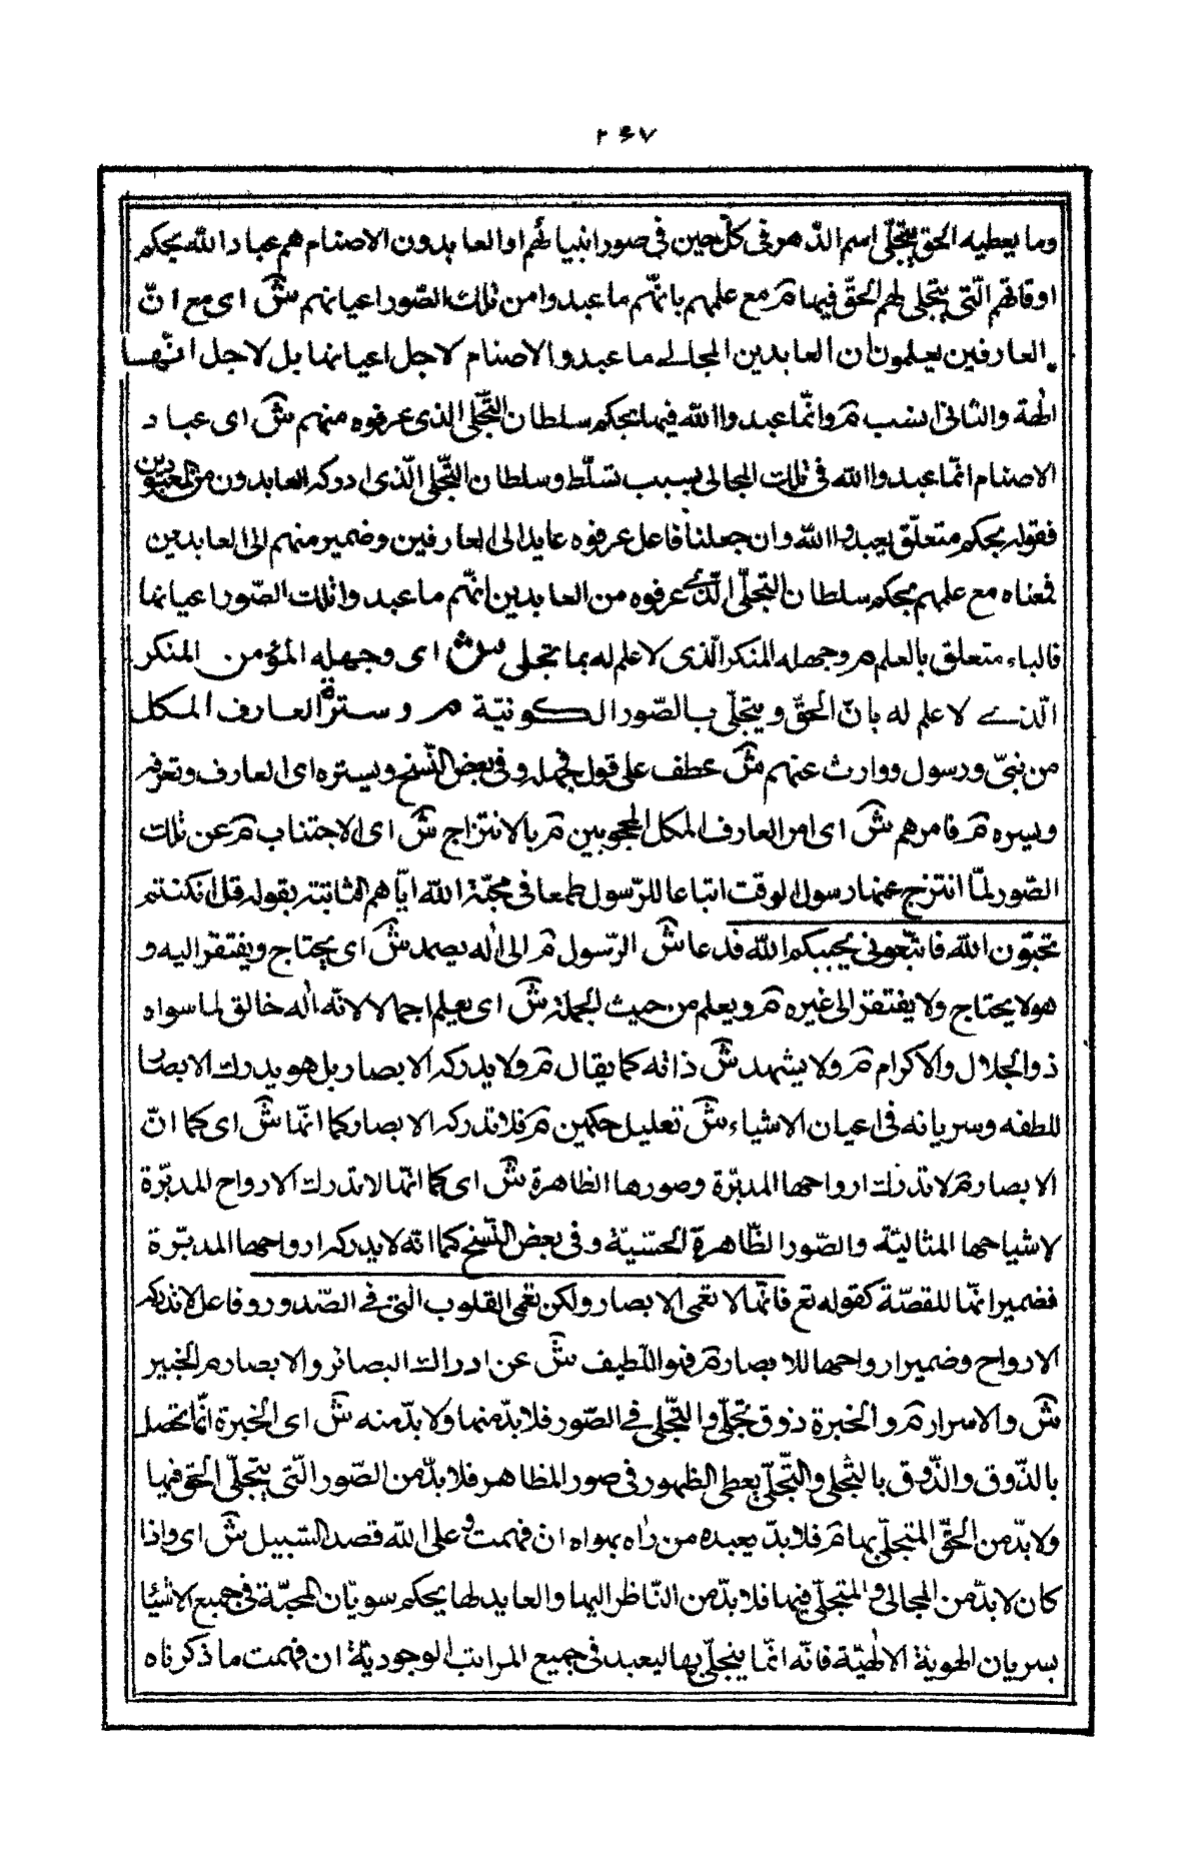 ٢٤٧
وما يعطيه الحق يتجلّى اسم الدّهر فى كلّ حين فى صور انبيائهم او العابدون الاصنام هم عباد اللّه بحكم
اوقاتهم الّتى يتجلى لهم الحقّ فيها م مع علمهم بانّهم ما عبدوا من تلك الصّور اعيانهم ش اى مع انّ
العارفين يعلمون ان العابدين المجالى ما عبدوا الاصنام لاجل اعيانها بل لاجل انّها
الٰهة والثانى انسب م وانّما عبدوا اللّه فيها بحكم سلطان التّجلى الذى عرفوه منهم ش اى عباد
الاصنام انّما عبدوا اللّه فى تلك المجالى بسبب تسلّط وسلطان التّجلى الّذى ادركه العابدون من المعبودين
فقوله بحكم متعلّق بعبدوا اللّه وان جعلنا فاعل عرفوه عايدا الى العارفين وضمير منهم الى العابدين
فمعناه مع علمهم بحكم سلطان التجلّى الّذى عرفوه من العابدين انّهم ما عبدوا تلك الصّور اعيانها
فالباء متعلق بالعلم م وجهله المنكر الّذى لا علم له بما تجلى ش اى وجهله المؤمن المنكر
الّذى لا علم له بانّ الحقّ ويتجلّى بالصّور الكونيّة م وستره العارف المكل
من نبىّ ورسول ووارث عنهم ش عطف على قول فجهله وفى بعض النّسخ ويستره اى العارف وتعرفه
ويسره م فامرهم ش اى امر العارف المكل المحجوبين م بالانتزاج ش اى الاجتناب م عن تلك
الصّور لمّا انتزج عنها رسول الوقت اتباعا للرّسول طمعا فى محبّة اللّه ايّاهم الثابتة بقوله قل ان كنتم
تحبّون اللّه فاتّبعونى يحببكم اللّه فدعا ش الرّسول م الى اله يصمد ش اى يحتاج ويفتقر اليه و
هو لا يحتاج ولا يفتقر الى غيره م ويعلم من حيث الجملة ش اى يعلم اجمالا لانّه اله خالق لما سواه
ذو الجلال والاكرام م ولا يشهد ش ذاته كما يقال م ولا يدركه الابصار بل هو يدرك الابصار
للطفه وسريانه فى اعيان الاشياء ش تعليل حكمين م فلا تدركه الابصار كما انّها ش اى كما انّ
الابصار م لا تدرك ارواحها المدبّرة وصورها الظاهرة ش اى كما انّها لا تدرك الارواح المدبّرة
لاشباحها المثاليّة والصّور الظّاهرة الحسّيّة وفى بعض النّسخ كما انّه لا يدركه ارواحها المدبّرة
فضمير انّها للقصّة كقوله تع فانّها لا تعمى الابصار ولكن تعمى القلوب التى فى الصّدور وفاعل لا تدركه
الارواح وضمير ارواحها للابصار م فهو اللّطيف ش عن ادراك البصائر والابصار م الخبير
ش والاسرار م والخبرة ذوق تجلّى والتّجلى فى الصّور فلا بدّ منها ولا بدّ منه ش اى الخبرة انّما تحصل
بالذّوق والذّوق بالتّجلى والتّجلّى يعطى الظهور فى صور المظاهر فلا بدّ من الصّور الّتى يتجلّى الحق فيها
ولا بدّ من الحقّ المتجلّى بها م فلا بدّ يعبده من راه بهواه ان فهمت وعلى اللّه قصد السّبيل ش اى واذا
كان لا بدّ من المجالى والمتجلّى فيها فلا بدّ من النّاظر اليها والعابد لها بحكم سريان المحبّة فى جميع الاشيا
بسريان الهوية الالٰهيّة فانّه انّما يتجلّى بها ليعبد فى جميع المراتب الوجوديّة ان فهمت ما ذكرناه